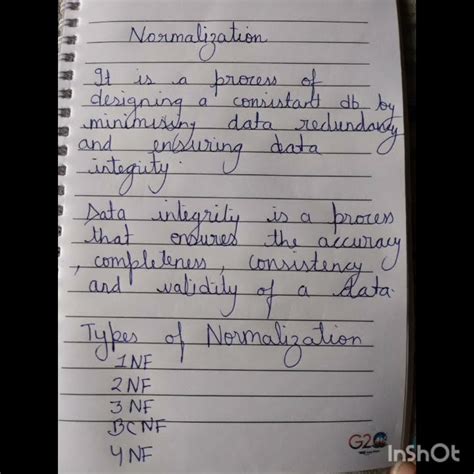 Normalization
It is a process of
designing a consistant db by
minimissng data redundancy
and ensuring data
integrity.
Data integrity is a process
that ensures the accuracy
, completeness, consistency
and validity of a data.
Types of Normalization
1NF
2NF
3NF
BCNF
4NF
G20
InShOt